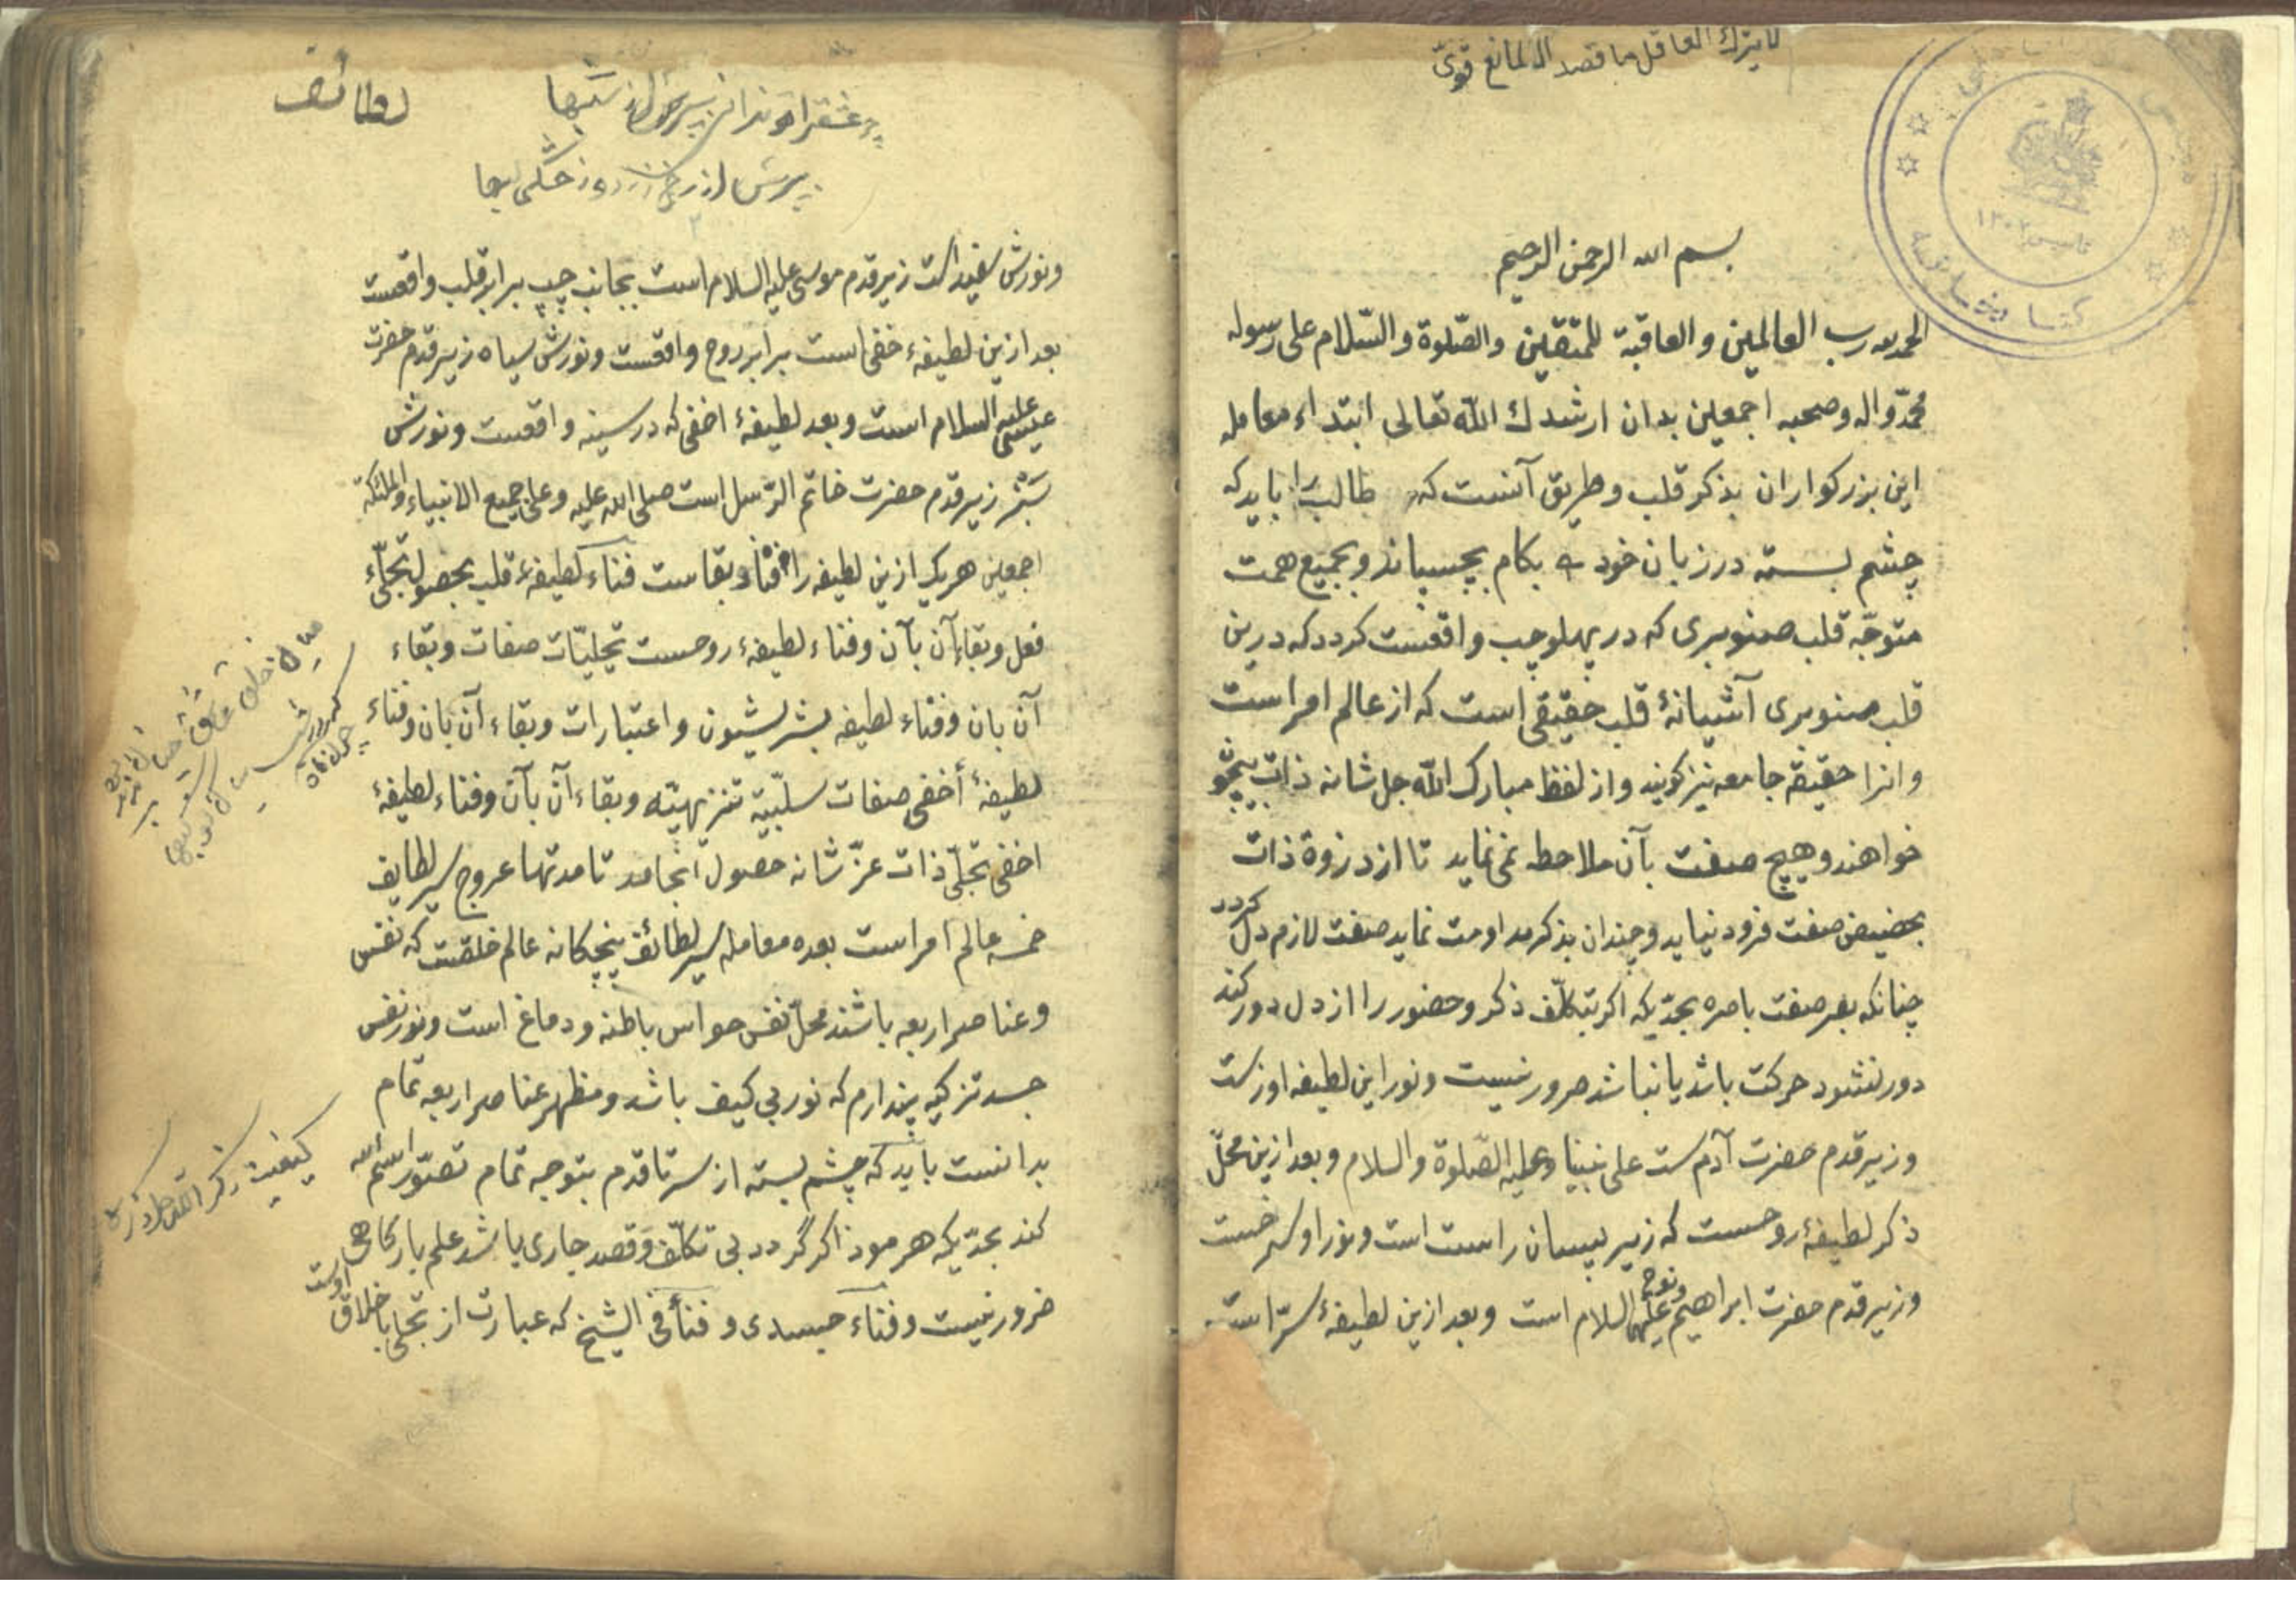 لا يترك العاقل ما قصد الا لمانع قوىّ
بسم الله الرحمن الرحيم
الحمد لله رب العالمين والعاقبة للمتقين والصّلوة والسّلام على رسوله
محمّد واله وصحبه اجمعين بدان ارشدك الله تعالى ابتداء معامله
اين بزركواران بذكر قلب وطريق آنست كه طالب را بايد كه
چشم بسته در زبان خود بكام بچسپاند و بجميع همت
متوجّه قلب صنوبرى كه در پهلو چپ واقعست كردد كه درين
قلب صنوبرى آشيانهٔ قلب حقيقى است كه از عالم امر است
وانرا حقيقة جامعه نيز كويند واز لفظ مبارك الله جل شانه ذات بيچو
خواهند وهيچ صفت بآن ملاحظه نمى نمايد تا از ذروة ذات
بحضيض صفت فرود نيايد وچندان بذكر مداومت نمايد صفت لازم دل كردد
چنانكه بصر صفت باصره بحدّيكه اكر بتكلّف ذكر وحضور را از دل دور كند
دور نشود حركت باشد يا نباشد ضرور نيست ونور اين لطيفه او زست
وزير قدم حضرت آدم ست على نبينا وعليه الصّلوة والسلام وبعد ازين محلّ
ذكر لطيفهٔ روحست كه زير پستان راست است ونور او سرخست
وزير قدم حضرت ابراهيم ونوح عليهما السلام است وبعد ازين لطيفهٔ سرّ است
لطائف
ونورش سفيد است زير قدم موسى عليه السلام است بجانب چپ برابر قلب واقعست
بعد ازين لطيفهٔ خفى است برابر روح واقعست ونورش سياه زير قدم حضرت
عيسى عليه السلام است وبعد لطيفهٔ اخفى كه در سينه واقعست ونورش
سَبْز زير قدم حضرت خاتم الرّسل است صلى الله عليه وعلى جميع الانبياء والملئكة
اجمعين هريك ازين لطيفه را فناء وبقاست فناء لطيفهٔ قلب بحصول تجلّاء
فعل وبقاء آن بآن وفناء لطيفهٔ روحست تجليّات صفات وبقاء
آن بان وفناء لطيفه بسر شيون واعتبارات وبقاء آن بان وفناء
لطيفهٔ أخفى صفات سلبيّة تنزيهيّه وبقاء آن بآن وفناء لطيفهٔ
اخفى تجلّى ذات عزّ شانه حصول انجامد تا مدتها عروج سير لطايف
خمسه عالم امر است بعده معامله سير لطائف پنچكانه عالم خلقست كه نفس
وعناصر اربعه باشند محلّ نفس حواس باطنه ودماغ است ونور نفس
جسد تزكيه پندارم كه نور بى كيف باشد ومظهر عناصر اربعه تمام
بدانست بايد كه چشم بسته از سر تا قدم بتوجه تمام تصوّر اسم الله
كند بحدّيكه هر مو ذاكر گردد بى تكلّف وقصد جارى باشد علم بار كاهى
ضرور نيست وفناء جسدى وفناء فى الشيخ كه عبارت از تجلى باخلاق اوست
كيفيت ذكر